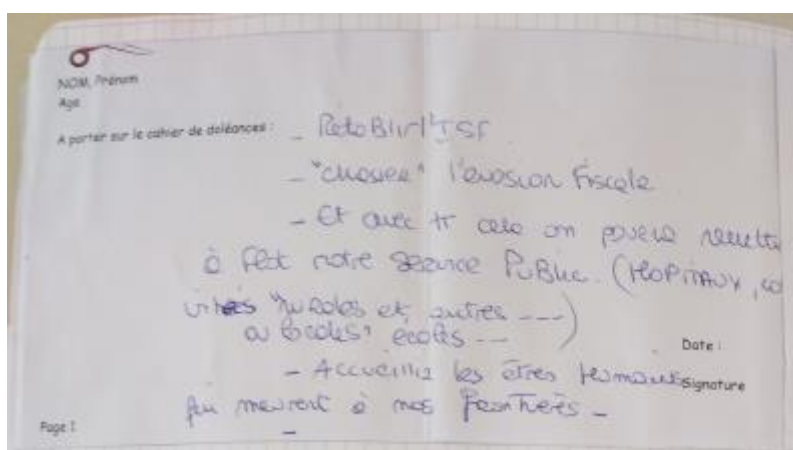 NOM, Prénom
Age
A porter sur le cahier de doléances : - RétaBlir l'ISF
- "chasser" l'évasion Fiscale
- Et avec tt cela on pourra remettre
à flot notre service PuBlic. (HOPITAUX,
rurales et autres ---)
ou locales" écoles ---
Date :
- Accueillir les êtres Humains
Signature
qui meurent à nos Frontières -
Page 1
-